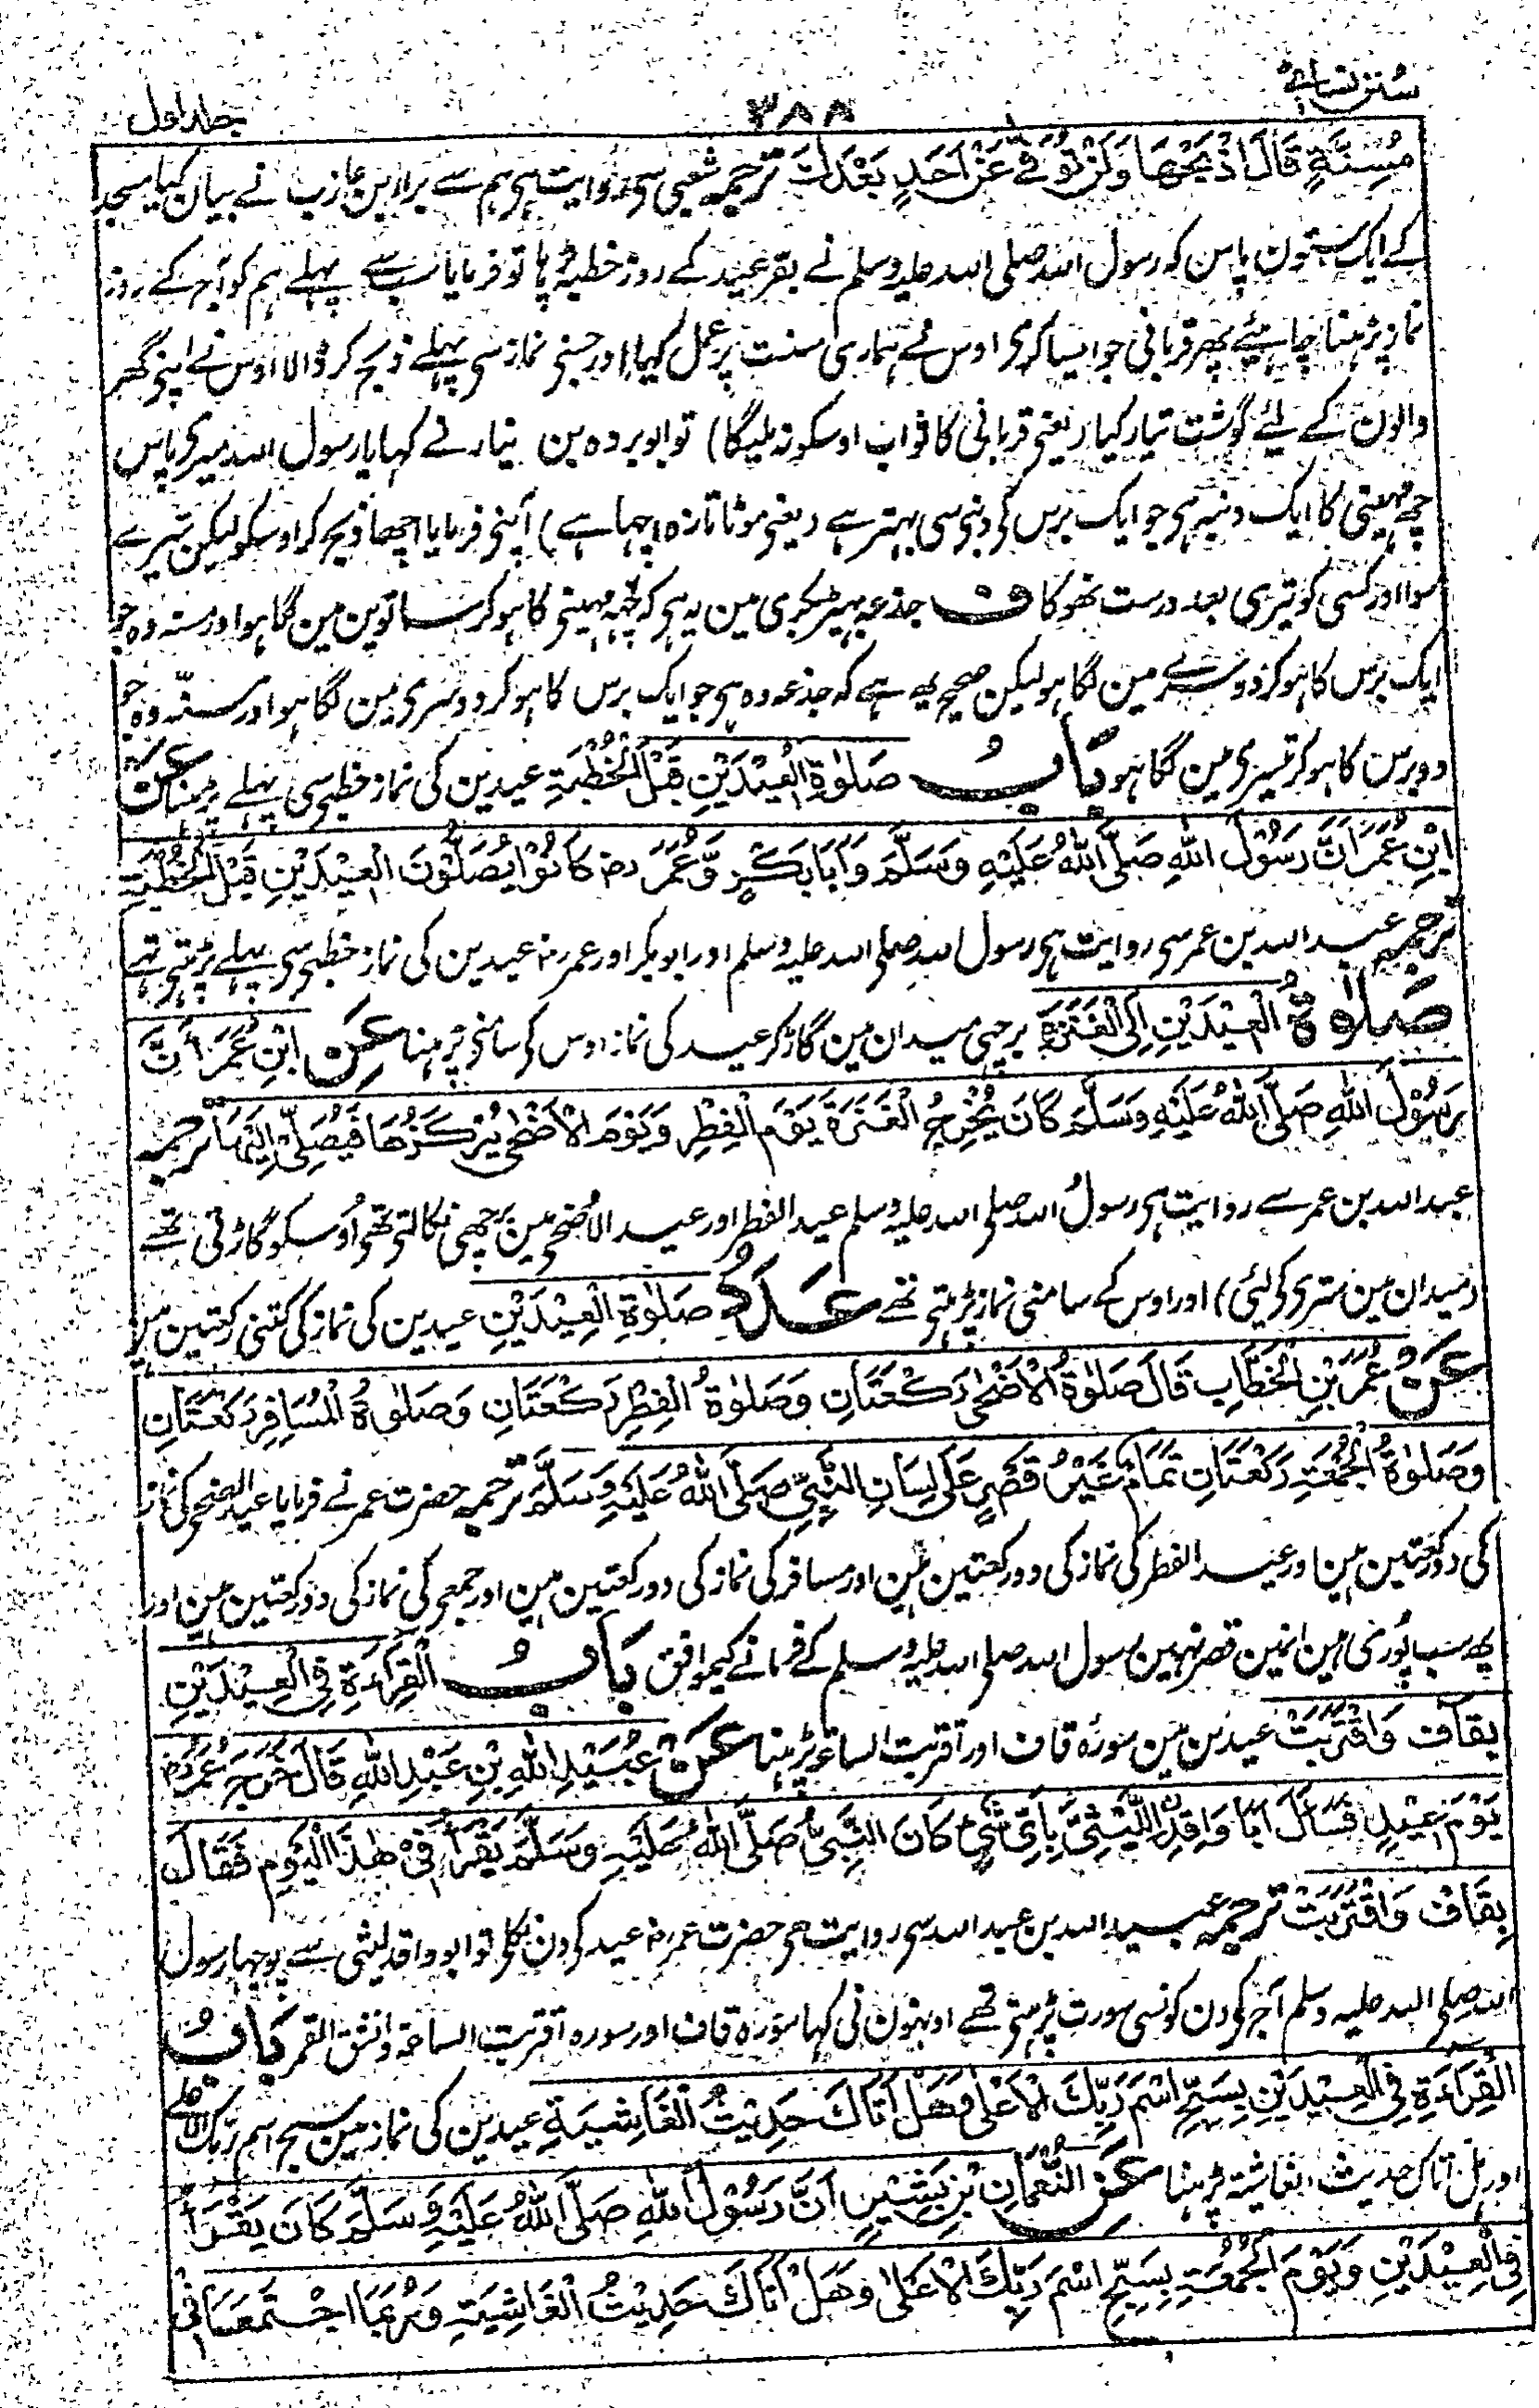 سنن نسائی
۳۸۸
جلد اول
مُسِنَّةٍ قَالَ اذْبَحْهَا وَلَنْ تُوَفِّيَ عَنْ اَحَدٍ بَعْدَكَ ترجمہ شعبی سی روایت ہی ہم سے براء بن عازب نے بیان کیا مسجد
کے ایک ستون پاس کہ رسول اللہ صلی اللہ علیہ وسلم نے بقر عید کے روز خطبہ پڑہا تو فرمایا سب سے پہلے ہم کو آج کے روز
نماز پڑہنا چاہئیے پھر قربانی جو ایسا کری اوس نے ہماری سنت پر عمل کیا اور جسنی نماز سی پہلے ذبح کر ڈالا اوس نے اپنی گھر
والون کے لئے گوشت تیار کیا (یعنی قربانی کا ثواب اوسکو نہ ملیگا) تو ابو بردہ بن نیار نے کہا یا رسول اللہ میری پاس
چھ مہینی کا ایک دنبہ ہی جو ایک برس کی دنبی سی بہتر ہے (یعنی موٹا تازہ اچھا ہے) آپنی فرمایا اچھا ذبح کر اوسکو لیکن تیرے
سوا اور کسی کو تیری بعد درست نہوگا ف جذعہ بہیڑ بکری مین یہ ہی کہ چھہ مہینی کا ہو کر ساتوین مین لگا ہو اور مسنہ وہ جو
ایک برس کا ہو کر دوسرے مین لگا ہو لیکن صحیح یہ ہے کہ جذعہ وہ ہی جو ایک برس کا ہو کر دوسری مین لگا ہو اور مسنّہ وہ جو
دو برس کا ہو کر تیسری مین لگا ہو بَابُ صَلٰوةِ الْعِيْدَيْنِ قَبْلَ الْخُطْبَةِ عیدین کی نماز خطبی سی پہلے پڑہنا عَنْ
ابْنِ عُمَرَ اَنَّ رَسُوْلَ اللّٰهِ صَلَّى اللّٰهُ عَلَيْهِ وَسَلَّمَ وَاَبَا بَكْرٍ وَّعُمَرَ رض كَانُوْا يُصَلُّوْنَ الْعِيْدَيْنِ قَبْلَ الْخُطْبَةِ
ترجمہ عبد اللہ بن عمر سی روایت ہی رسول اللہ صلی اللہ علیہ وسلم اور ابو بکر اور عمر رض عیدین کی نماز خطبی سی پہلے پڑہتی تہے
صَلٰوةُ الْعِيْدَيْنِ اِلَى الْعَنَزَةِ برچہی میدان مین گاڑ کر عید کی نماز اوس کی سامنی پڑہنا عَنِ ابْنِ عُمَرَ اَنَّ
رَسُوْلَ اللّٰهِ صَلَّى اللّٰهُ عَلَيْهِ وَسَلَّمَ كَانَ يُخْرِجُ الْعَنَزَةَ يَوْمَ الْفِطْرِ وَيَوْمَ الْاَضْحٰى يَرْكُزُهَا فَيُصَلِّيْ اِلَيْهَا ترجمہ
عبد اللہ بن عمر سے روایت ہی رسول اللہ صلی اللہ علیہ وسلم عید الفطر اور عید الاضحی مین برچھی نکالتی تھی اوسکو گاڑتی تھے
(میدان مین ستری کی لئی) اور اوس کے سامنی نماز پڑہتی تھے عَدَدُ صَلٰوةِ الْعِيْدَيْنِ عیدین کی نماز کی کتنی رکعتین ہین
عَنْ عُمَرَ بْنِ الْخَطَّابِ قَالَ صَلٰوةُ الْاَضْحٰى رَكْعَتَانِ وَصَلٰوةُ الْفِطْرِ رَكْعَتَانِ وَصَلٰوةُ الْمُسَافِرِ رَكْعَتَانِ
وَصَلٰوةُ الْجُمُعَةِ رَكْعَتَانِ تَمَامٌ غَيْرُ قَصْرٍ عَلٰى لِسَانِ النَّبِيِّ صَلَّى اللّٰهُ عَلَيْهِ وَسَلَّمَ ترجمہ حضرت عمر نے فرمایا عید الضحی کی نماز
کی دو رکعتین ہین اور عید الفطر کی نماز کی دو رکعتین ہین اور مسافر کی نماز کی دو رکعتین ہین اور جمعی کی نماز کی دو رکعتین ہین اور
یہ سب پوری ہین انمین قصر نہین رسول اللہ صلی اللہ علیہ وسلم کے فرمانے کیموافق بَابُ الْقِرَاءَةِ فِي الْعِيْدَيْنِ
بِقَافْ وَاقْتَرَبَتْ عیدین مین سورۂ قاف اور اقتربت الساعۃ پڑہنا عَنْ عُبَيْدِ اللّٰهِ بْنِ عَبْدِ اللّٰهِ قَالَ خَرَجَ عُمَرُ رض
يَوْمَ عِيْدٍ فَسَاَلَ اَبَا وَاقِدٍ اللَّيْثِيَّ بِاَيِّ شَيْءٍ كَانَ النَّبِيُّ صَلَّى اللّٰهُ عَلَيْهِ وَسَلَّمَ يَقْرَأُ فِيْ هٰذَا الْيَوْمِ فَقَالَ
بِقَافْ وَاقْتَرَبَتْ ترجمہ عبید اللہ بن عبد اللہ سی روایت ہی حضرت عمر رض عید کی دن نکلی تو ابو واقد لیثی سے پوچہا رسول
اللہ صلی اللہ علیہ وسلم آج کی دن کونسی سورت پڑہتی تھے اونہون نی کہا سورہ قاف اور سورہ اقتربت الساعۃ وانشق القمر بَابُ
الْقِرَاءَةِ فِي الْعِيْدَيْنِ بِسَبِّحِ اسْمَ رَبِّكَ الْاَعْلٰى وَهَلْ اَتَاكَ حَدِيْثُ الْغَاشِيَةِ عیدین کی نماز مین سبح اسم ربک الاعلے
اور ہل اتاک حدیث الغاشیۃ پڑہنا عَنِ النُّعْمَانِ بْنِ بَشِيْرٍ اَنَّ رَسُوْلَ اللّٰهِ صَلَّى اللّٰهُ عَلَيْهِ وَسَلَّمَ كَانَ يَقْرَأُ
فِي الْعِيْدَيْنِ وَيَوْمَ الْجُمُعَةِ بِسَبِّحِ اسْمَ رَبِّكَ الْاَعْلٰى وَهَلْ اَتَاكَ حَدِيْثُ الْغَاشِيَةِ وَرُبَمَا اجْتَمَعَا فِيْ